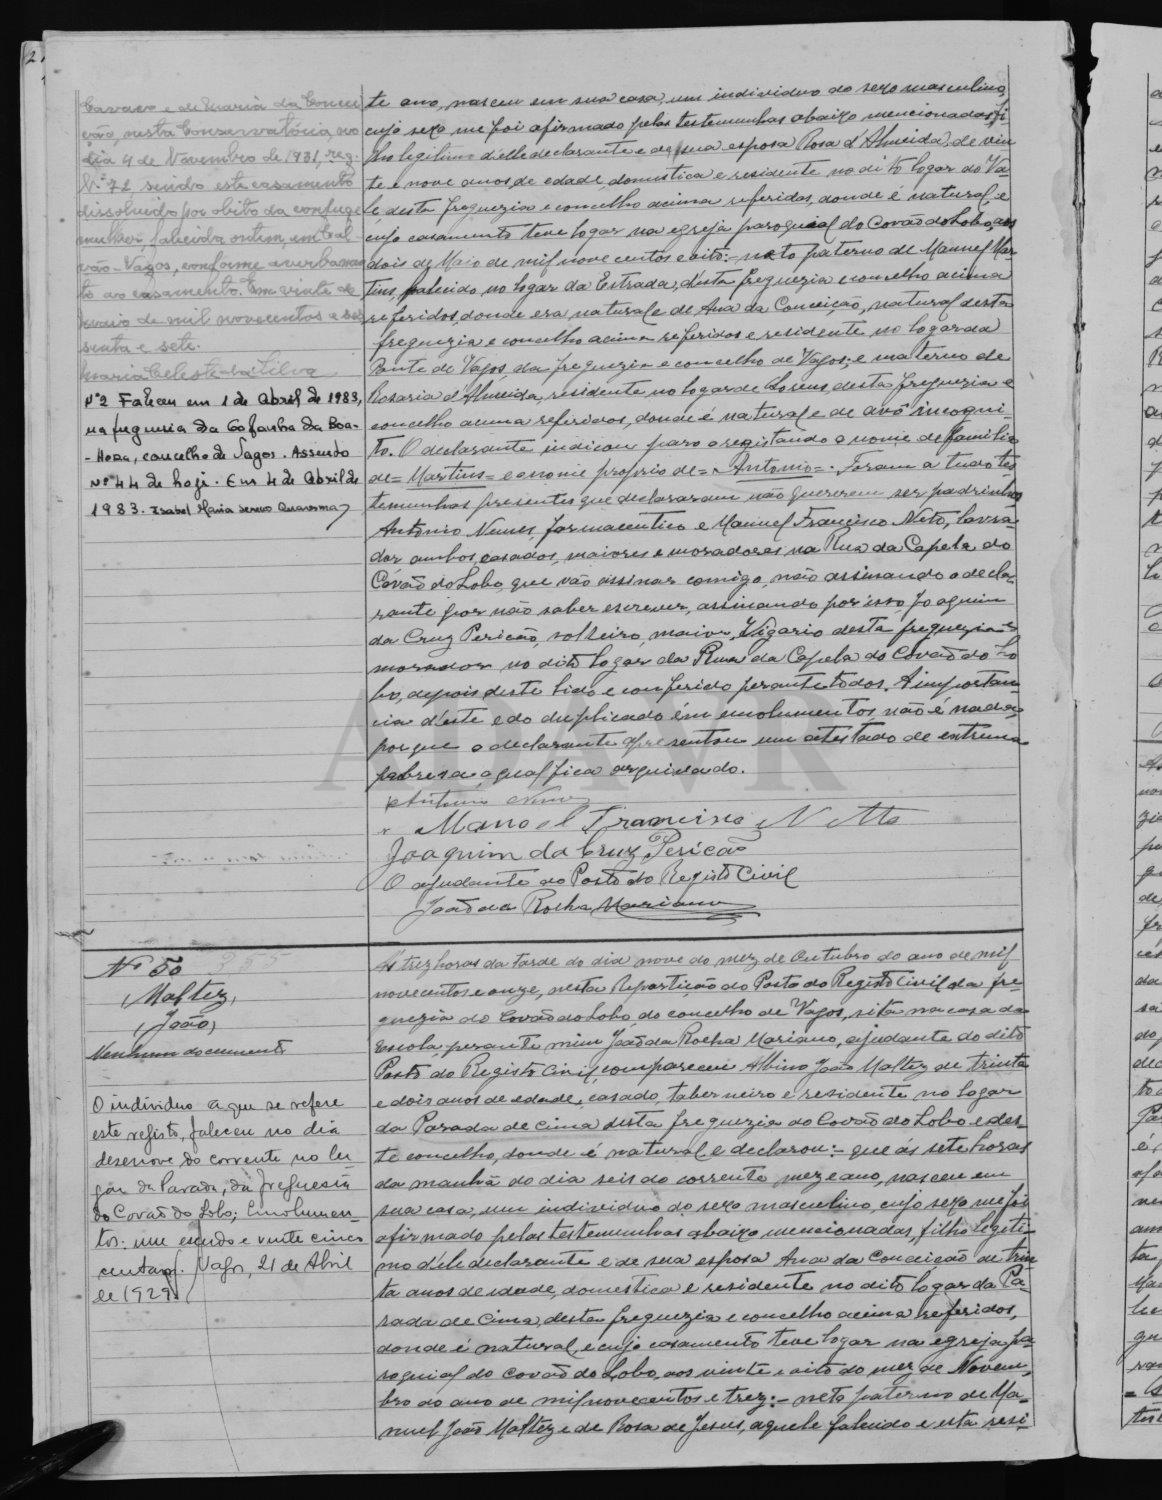 Cavaco e de Maria da Concei
ção, nesta Conservatória, no
dia 4 de Novembro de 1931, reg.
Nº 72 sendo este casamento
dissolvido por obito da conjuge
mulher, falecida ontem, em Cal
vão-Vagos, conforme averbamen
to ao casamento. Em vinte de
Janeiro de mil novecentos e ses
senta e sete.
Maria Celeste da Silva
Nº 2 Faleceu em 1 de Abril de 1983,
na freguesia da Gafanha da Boa-
-Hora, concelho de Vagos. Assento
Nº 44 de hoje. Em 4 de Abril de
1983. Isabel Maria Quaresma
te ano, nasceu em sua casa, um individuo do sexo masculino,
cujo sexo me foi afirmado pelas testemunhas abaixo mencionadas, fi
lho legitimo d'elle declarante e de sua esposa Rosa d'Almeida, de vin
te e nove anos de edade, domestica e residente no dito logar do Va-
le desta freguezia e concelho acima referidos, donde é natural, e
cujo casamento teve logar na egreja paroquial do Covão do Lobo, aos
dois de Maio de mil nove centos e oito:- neto paterno de Manuel Mar
tins, falecido no logar da Estrada, desta freguezia e concelho acima
referidos, donde era natural e de Ana da Conceição, natural desta
freguezia e concelho acima referidos e residente no logar da
Ponte de Vagos da freguezia e concelho de Vagos; e materno de
Rosaria d'Almeida, residente no logar de desta freguezia e
concelho acima referidos, donde é natural e de avô incogni-
to. O declarante indicou para o registando o nome de familia
de= Martins= e o nome proprio de= Antonio=. Foram a tudo tes
temunhas presentes que declararam não quererem ser padrinhos
Antonio Nunes, farmaceutico e Manuel Francisco Neto, lavra-
dor ambos casados, maiores e moradores na Rua da Capela do
Covão do Lobo, que vão assinar comigo, não assinando o decla-
rante por não saber escrever, assinando por isso Joaquim
da Cruz Pericão, solteiro, maior, Vigario desta freguezia e
morador no dito logar da Rua da Capela do Covão do Lo
bo, depois deste lido e conferido perante todos. A importan-
cia d'este e do duplicado em emolumentos, não é nada,
porque o declarante apresentou um atestado de extrema
pobreza o qual fica arquivado.
Antonio Nunes
Manoel Francisco Netto
Joaquim da Cruz Pericão
O ajudante do Posto do Registo Civil
João da Rocha Mariano
Nº 50 355
Maltez,
João,
Nenhum documento
O individuo a que se refere
este registo, faleceu no dia
desenove do corrente no lu
gar da Parada, da freguesia
do Covão do Lobo; Emolumen-
tos: um escudo e vinte cinco
centavos. Vagos, 21 de Abril
de 1929.
Ás trez horas da tarde do dia nove do mez de Outubro do ano de mil
novecentos e onze, nesta Repartição do Posto do Registo Civil da fre-
guezia do Covão do Lobo do concelho de Vagos, sita na casa da
Escola, perante mim João da Rocha Mariano, ajudante do dito
Posto do Registo Civil, compareceu Albino João Maltez de trinta
e dois anos de edade, casado, taberneiro e residente no logar
da Parada de cima desta freguezia do Covão do Lobo e des-
te concelho, donde é natural e declarou:- que ás sete horas
da manhã do dia seis do corrente mez e ano, nasceu em
sua casa, um individuo do sexo masculino, cujo sexo me foi
afirmado pelas testemunhas abaixo mencionadas, filho legiti-
mo d'ele declarante e de sua esposa Ana da Conceição de trin
ta anos de edade, domestica e residente no dito logar da Pa-
rada de Cima, desta freguezia e concelho acima referidos,
donde é natural, e cujo casamento teve logar na egreja pa-
roquial do Covão do Lobo, aos vinte e oito do mez de Novem-
bro do ano de mil novecentos e trez:- neto paterno de Ma-
nuel João Maltez e de Rosa de Jesus, aquele falecido e esta resi-
ADAVR